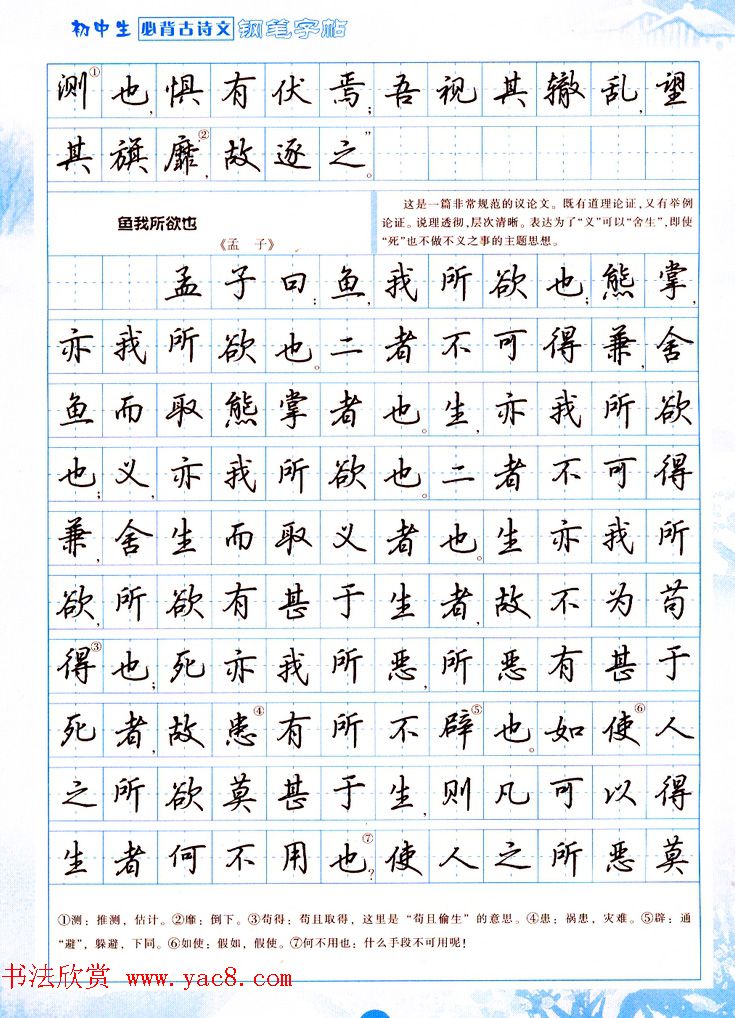 初中生 必背古诗文 钢笔字帖
测①也,惧有伏焉;吾视其辙乱,望
其旗靡②,故逐之。”
鱼我所欲也
《孟 子》
这是一篇非常规范的议论文。既有道理论证,又有举例
论证。说理透彻,层次清晰。表达为了“义”可以“舍生”,即使
“死”也不做不义之事的主题思想。
孟子曰:鱼,我所欲也;熊掌,
亦我所欲也。二者不可得兼,舍
鱼而取熊掌者也。生,亦我所欲
也;义,亦我所欲也。二者不可得
兼,舍生而取义者也。生亦我所
欲,所欲有甚于生者,故不为苟
得③也;死亦我所恶,所恶有甚于
死者,故患④有所不辟⑤也。如使⑥人
之所欲莫甚于生,则凡可以得
生者何不用也⑦?使人之所恶莫
①测:推测,估计。②靡:倒下。③苟得:苟且取得,这里是“苟且偷生”的意思。④患:祸患,灾难。⑤辟:通
“避”,躲避,下同。⑥如使:假如,假使。⑦何不用也:什么手段不可用呢!
书法欣赏 www.yac8.com